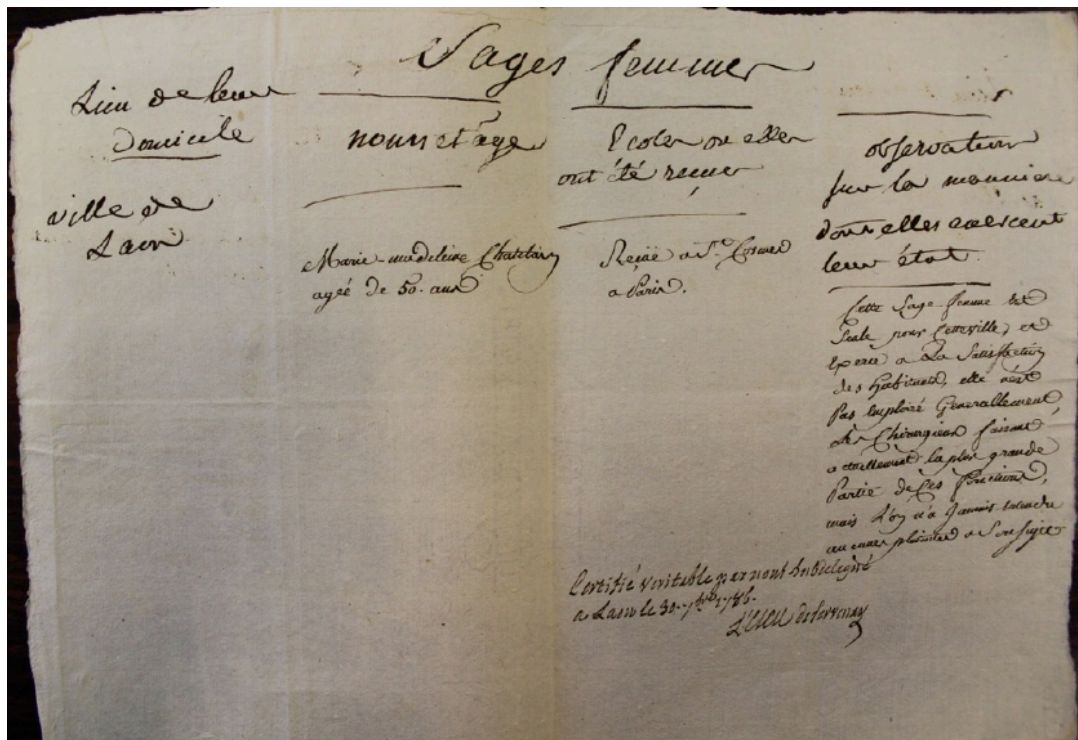 Sages femmes
Lieu de leur
domicile
noms et age
Ecoles ou elles
ont été reçues
observations
sur la maniere
dont elles exercent
leur état
ville de
Laon
Marie-madeleine Chatelain
agée de 50. ans
Reçüe a St. Cosmes
a Paris.
Cette Sage femme est
Seule pour Cette ville, et
Experte a La Satisfaction
des habitants, elle n'est
Pas Employé Generallement
Les Chirurgiens faisant
actuellement la plus grande
Partie de Ces fonctions,
mais L'on n'a Jamais entendu
aucunes plaintes a Son Sujet
Certifié veritable par nous Subdelegué
a Laon le 30. 7bre 1786.